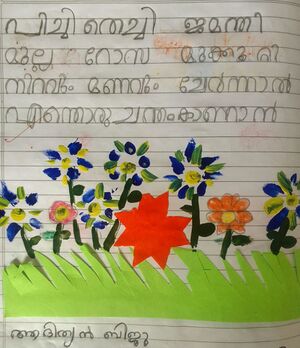 പിച്ചി തെച്ചി ജമന്തി
മുല്ല റോസ മുക്കുറ്റി
നിറവും മണവും ചേർന്നാൽ
എന്തൊരു ചന്തം കാണാൻ
ആദിത്യൻ ബിജു